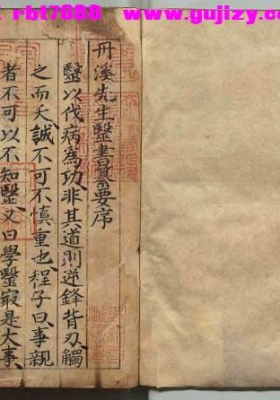 rbt7888 www.gujizy.com
丹溪先生醫書纂要序
醫以伐病爲功非其道則逆鋒背刃觸
之而夭誠不可不慎重也程子曰事親
者不可以不知醫又曰學醫寂是大事